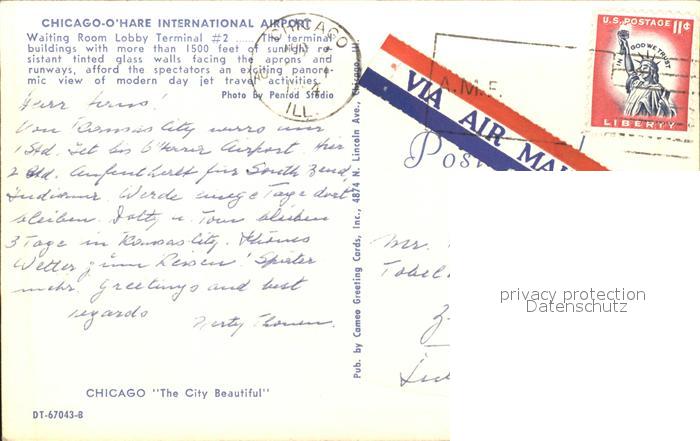 CHICAGO-O'HARE INTERNATIONAL AIRPORT
Waiting Room Lobby Terminal #2 ..... The terminal
buildings with more than 1500 feet of sunlight re-
sistant tinted glass walls facing the aprons and
runways, afford the spectators an exciting panora-
mic view of modern day jet travel activities.
Photo by Penrod Studio
CHICAGO
ILL
U.S. POSTAGE 11¢
IN GOD WE TRUST
LIBERTY
A.M.F.
VIA AIR MAI
Post
Herr
Von Kansas City
1 Std. Jet bis O'Herer Airport. Hier
2 Std. Aufenthalt für South Bend,
Indiana. Werde einige Tage dort
bleiben. Dotty u. Tom bleiben
3 Tage in Kansas City. Schönes
Wetter zum Reisen! Später
mehr. Greetings and best
regards
Mr.
Tobel
Pub. by Cameo Greeting Cards, Inc., 4874 N. Lincoln Ave., Chicago, Ill.
privacy protection
Datenschutz
CHICAGO "The City Beautiful"
DT-67043-B